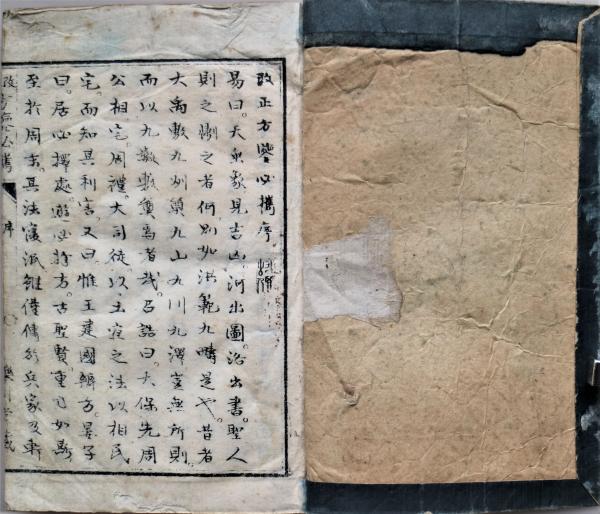 改正方鑒必携序
易曰。天垂象見吉凶。河出圖。洛出書。聖人
則之。則之者何。別如洪範九疇是也。昔者
大禹敷九州。奠九山九川九澤。豈無所則。
而以九數數奠焉者哉。召誥曰。大保先周
公相宅。周禮。大司徒以土宜之法。以相民
宅。而知其利害。又曰惟王建國辨方。晏子
曰。居必擇處。遊必詳方。古聖賢重之如斯
至於周末。其法寖泯。雖僅傳於兵家及軒
序